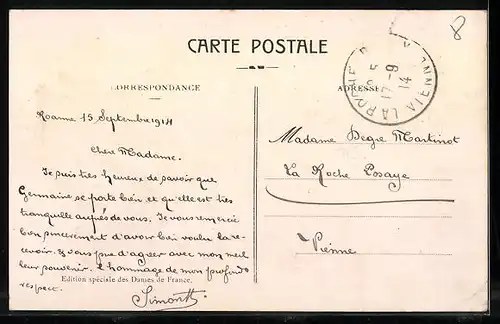 8
CARTE POSTALE
CORRESPONDANCE
ADRESSE
LA ROCHE
VIENNE
5
17-9
14
Roanne 15 Septembre 1914
Chère Madame.
Je suis très heureux de savoir que
Germaine se porte bien et qu'elle est très
tranquille auprès de vous. Je vous remercie
bien sincèrement d'avoir bien voulu la re-
cevoir. et vous prie d'agréer avec mon meil
leur souvenir. l'hommage de mon profond
respect.
Edition spéciale des Dames de France.
Madame Degre Martinot
La Roche Posaye
Vienne